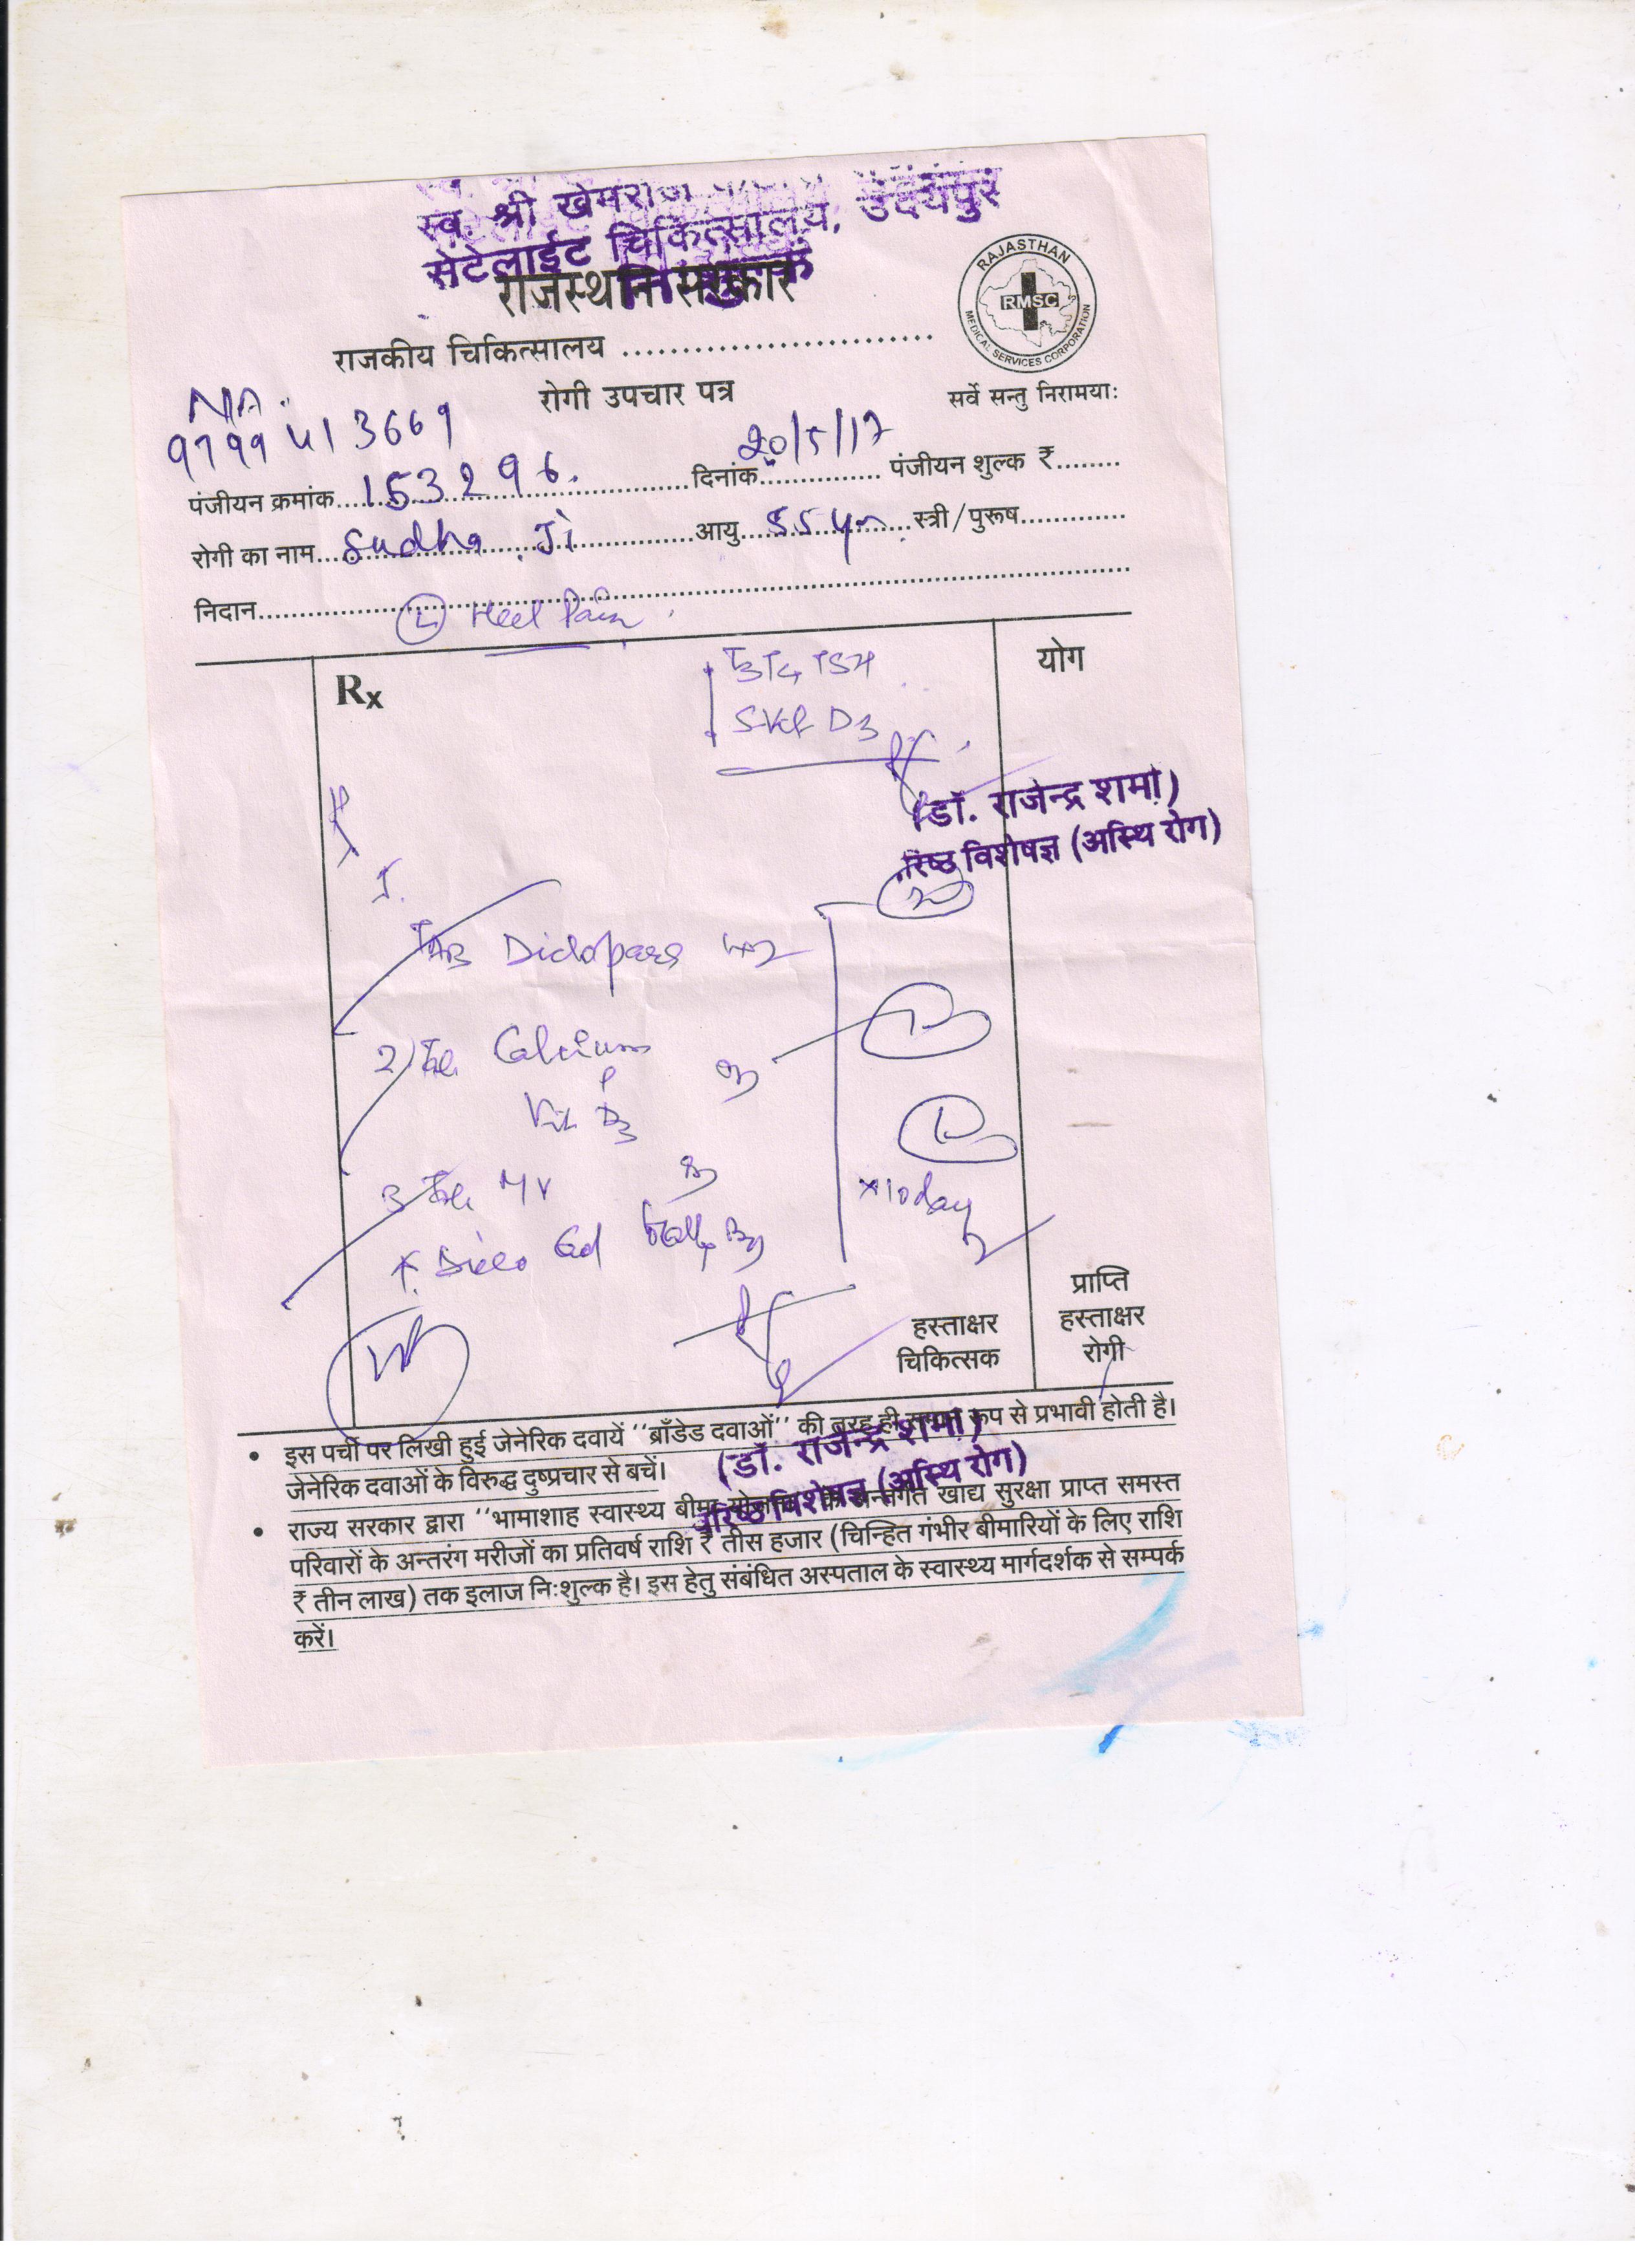 स्व. श्री खेमराज
सेटेलाईट चिकित्सालय, उदयपुर
राजस्थान सरकार
निःशुल्क
RAJASTHAN
RMSC
MEDICAL SERVICES CORPORATION
राजकीय चिकित्सालय ..........................
रोगी उपचार पत्र
सर्वे सन्तु निरामयाः
9799413669
पंजीयन क्रमांक 153296. दिनांक 20/5/17 पंजीयन शुल्क ₹........
रोगी का नाम Sudha Ji आयु 55 yr स्त्री/पुरूष.............
निदान (L) Heel Pain
Rx
योग
T3 T4 TSH
D3
(डॉ. राजेन्द्र शर्मा)
विशेषज्ञ (अस्थि रोग)
1.
TAB Diclopara
2) Tab Calcium
Vit D3
3 Tab MV
Diclo Gel
x10 day
हस्ताक्षर
चिकित्सक
प्राप्ति
हस्ताक्षर
रोगी
• इस पर्ची पर लिखी हुई जेनेरिक दवायें ''ब्राँडेड दवाओं'' की तरह ही समान रूप से प्रभावी होती है।
जेनेरिक दवाओं के विरुद्ध दुष्प्रचार से बचें।
(डॉ. राजेन्द्र शर्मा)
विशेषज्ञ (अस्थि रोग)
• राज्य सरकार द्वारा ''भामाशाह स्वास्थ्य बीमा योजना'' के अन्तर्गत खाद्य सुरक्षा प्राप्त समस्त
परिवारों के अन्तरंग मरीजों का प्रतिवर्ष राशि ₹ तीस हजार (चिन्हित गंभीर बीमारियों के लिए राशि
₹ तीन लाख) तक इलाज निःशुल्क है। इस हेतु संबंधित अस्पताल के स्वास्थ्य मार्गदर्शक से सम्पर्क
करें।